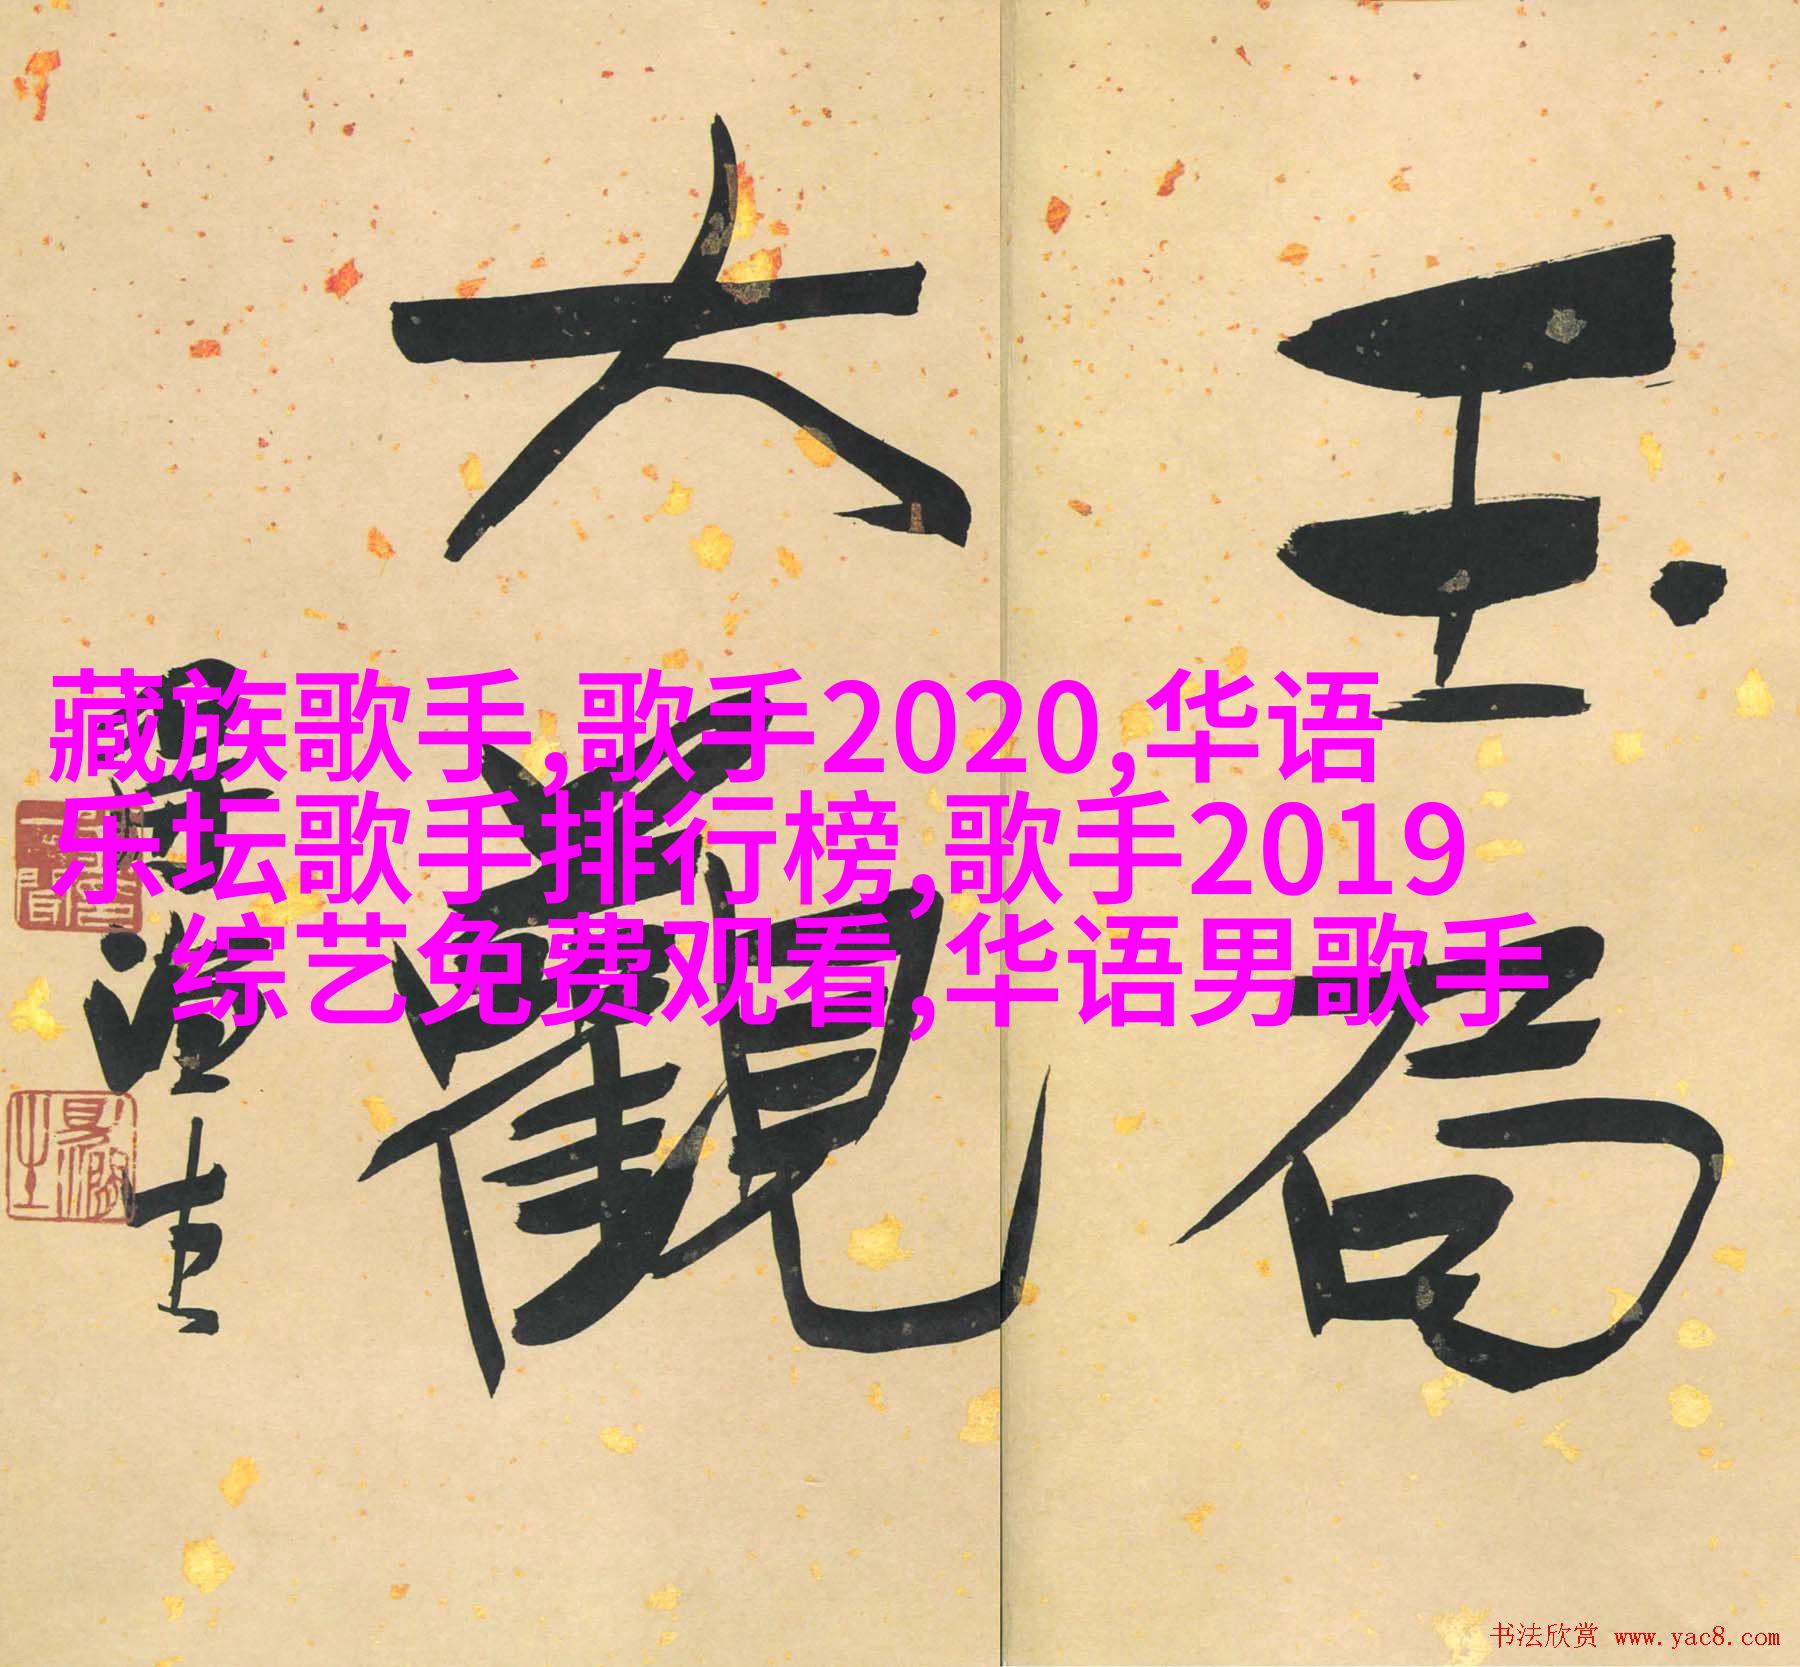 玉局
大觀
藏族歌手,歌手2020,华语
乐坛歌手排行榜,歌手2019
综艺免费观看,华语男歌手
书法欣赏 www.yac8.com